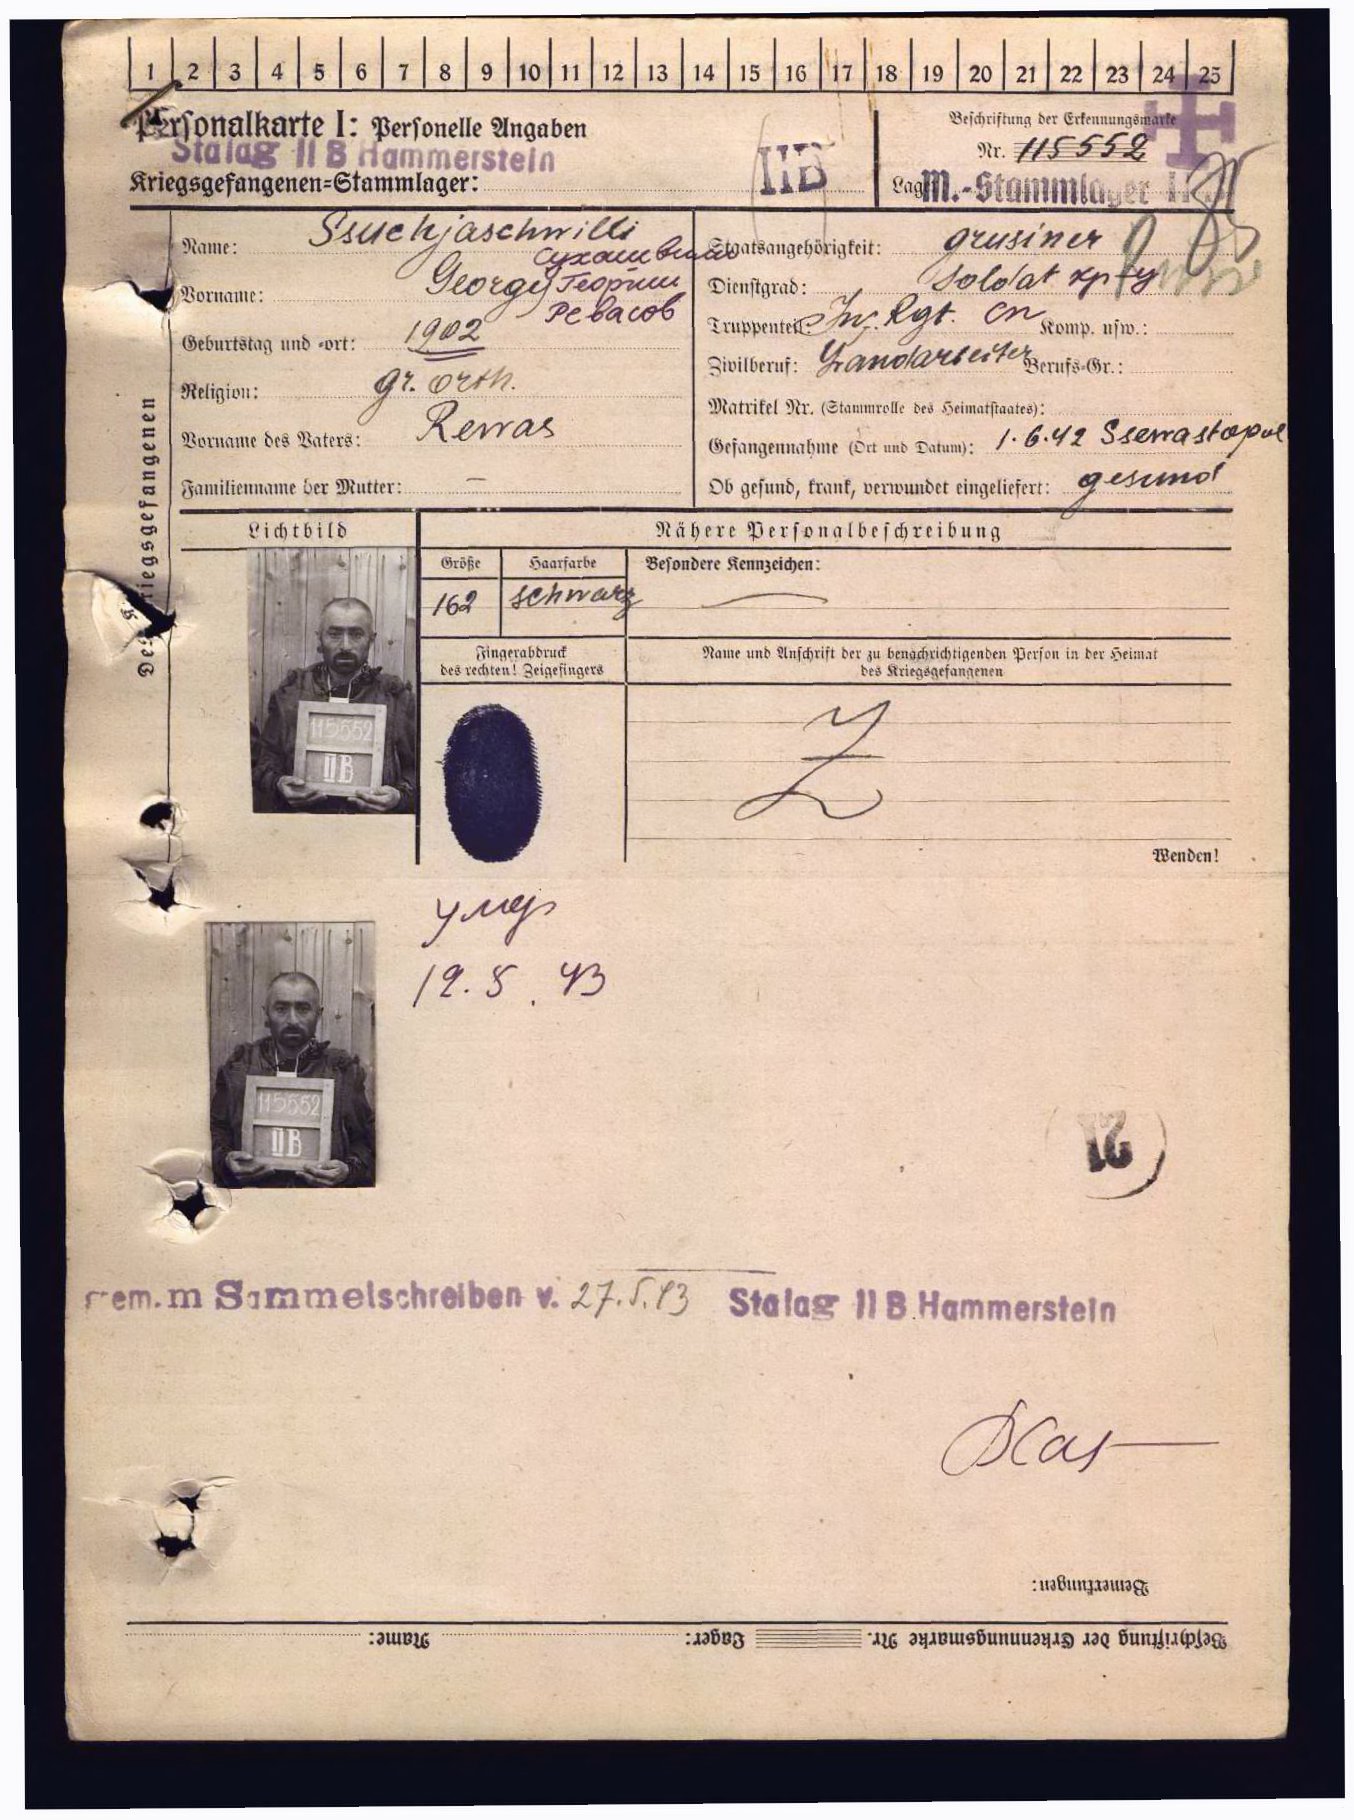 1 2 3 4 5 6 7 8 9 10 11 12 13 14 15 16 17 18 19 20 21 22 23 24 25
Personalkarte I: Personelle Angaben
Beschriftung der Erkennungsmarke
Stalag II B Hammerstein
IIB
Nr. 115552
Kriegsgefangenen=Stammlager:
Lag M.-Stammlager
Des Kriegsgefangenen
Name: Ssuchjaschwilli
Сухашвили
Vorname: Georgij Георгии
Ревасов
Geburtstag und =ort: 1902
Religion: gr. orth.
Vorname des Vaters: Rewas
Familienname der Mutter: –
Staatsangehörigkeit: grusiner
Dienstgrad: Soldat кр-ц
Truppenteil: Inf. Rgt. сп Komp. usw.:
Zivilberuf: Landarbeiter Berufs=Gr.:
Matrikel Nr. (Stammrolle des Heimatstaates):
Gefangennahme (Ort und Datum): 1.6.42 Ssewastopol
Ob gesund, krank, verwundet eingeliefert: gesund
Lichtbild
Nähere Personalbeschreibung
Größe
Haarfarbe
Besondere Kennzeichen:
162
schwarz
Fingerabdruck
des rechten! Zeigefingers
Name und Anschrift der zu benachrichtigenden Person in der Heimat
des Kriegsgefangenen
115552
IIB
Wenden!
умер
12.5.43
115552
IIB
21
gem. m Sammelschreiben v. 27.5.43 Stalag II B Hammerstein
Bemerkungen:
Beschriftung der Erkennungsmarke Nr. Lager: Name: